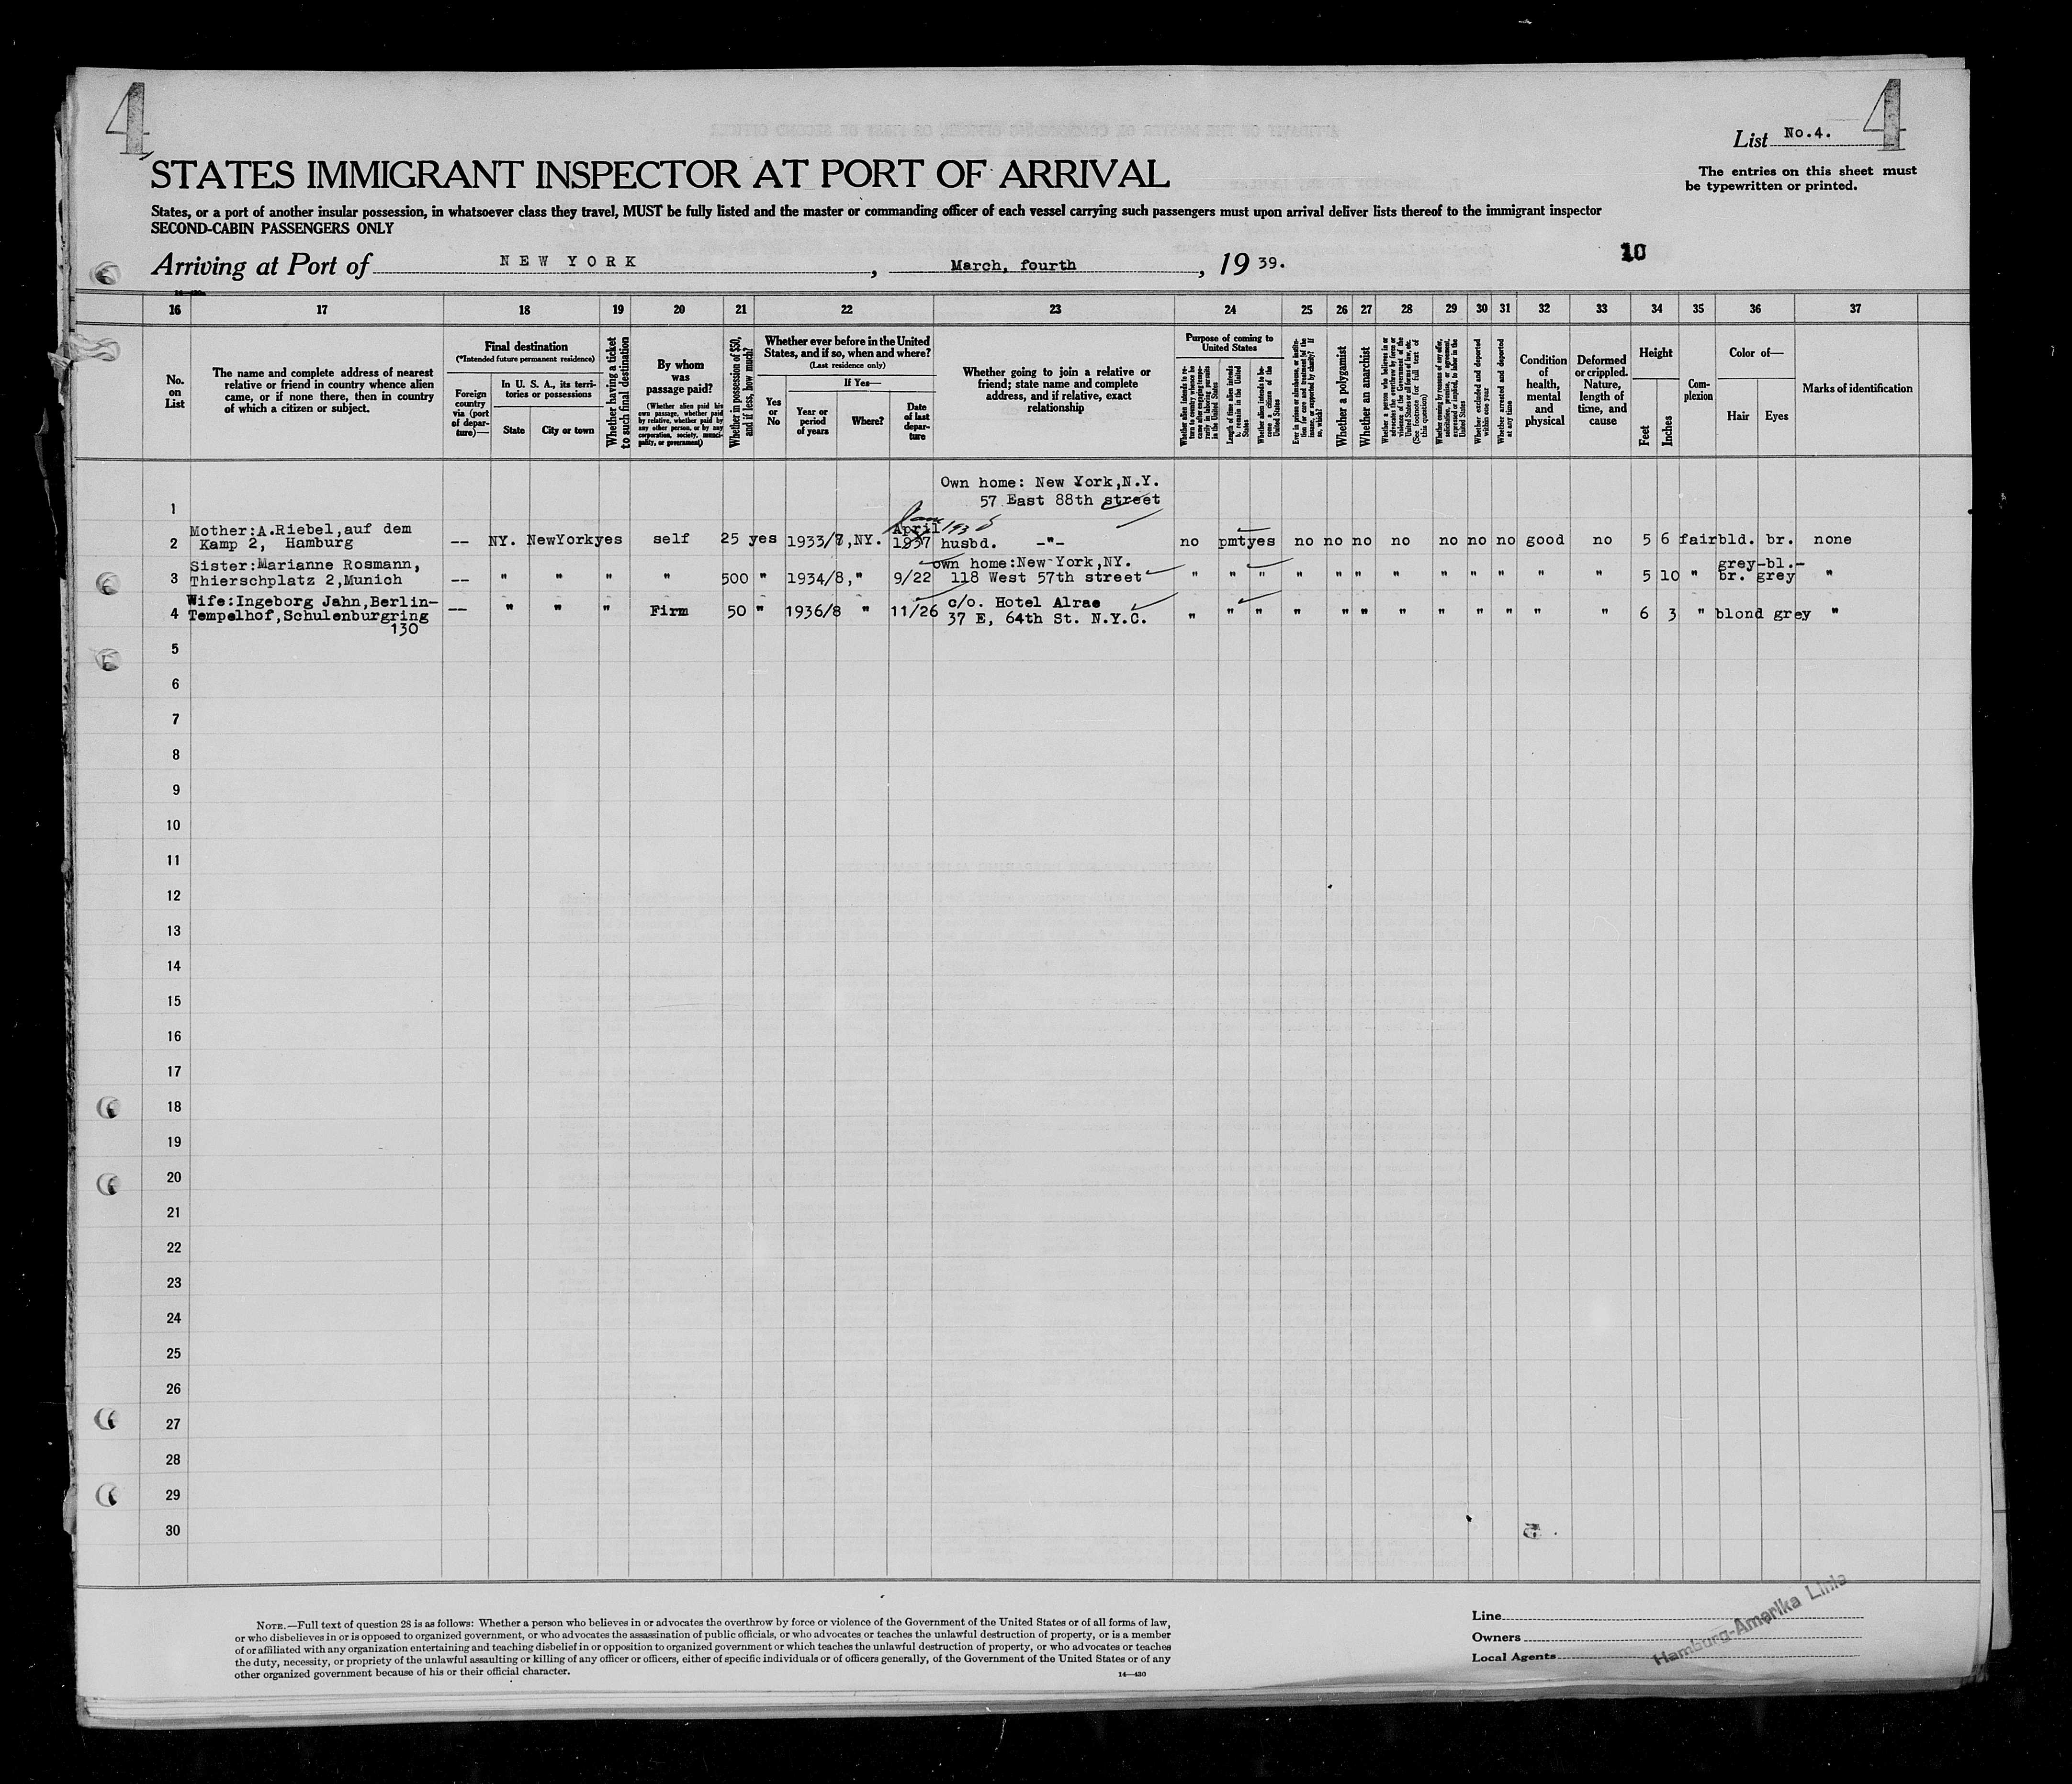 4
List No.4.
4
STATES IMMIGRANT INSPECTOR AT PORT OF ARRIVAL
The entries on this sheet must
be typewritten or printed.
States, or a port of another insular possession, in whatsoever class they travel, MUST be fully listed and the master or commanding officer of each vessel carrying such passengers must upon arrival deliver lists thereof to the immigrant inspector
SECOND-CABIN PASSENGERS ONLY
10
Arriving at Port of NEW YORK, March, fourth, 1939.
16 17 18 19 20 21 22 23 24 25 26 27 28 29 30 31 32 33 34 35 36 37
No.
on
List
The name and complete address of nearest
relative or friend in country whence alien
came, or if none there, then in country
of which a citizen or subject.
Final destination
(*Intended future permanent residence)
Foreign
country
via (port
of depar-
ture)—
In U. S. A., its terri-
tories or possessions
State
City or town
Whether having a ticket
to such final destination
By whom
was
passage paid?
(Whether alien paid his
own passage, whether paid
by relative, whether paid by
any other person, or by any
corporation, society, munici-
pality, or government)
Whether in possession of $50,
and if less, how much?
Whether ever before in the United
States, and if so, when and where?
(Last residence only)
Yes
or
No
If Yes—
Year or
period
of years
Where?
Date
of last
depar-
ture
Whether going to join a relative or
friend; state name and complete
address, and if relative, exact
relationship
Purpose of coming to
United States
Whether alien intends to re-
turn to country whence he
came after engaging tempo-
rarily in laboring pursuits
in the United States
Length of time alien intends
to remain in the United
States
Whether alien intends to be-
come a citizen of the
United States
Ever in prison or almshouse, or institu-
tion for care and treatment of the
insane, or supported by charity? If
so, which?
Whether a polygamist
Whether an anarchist
Whether a person who believes in or
advocates the overthrow by force or
violence of the Government of the
United States or all forms of law, etc.
(See footnote for full text of
this question)
Whether coming by reasons of any offer,
solicitation, promise, or agreement,
expressed or implied, to labor in the
United States
Whether excluded and deported
within one year
Whether arrested and deported
at any time
Condition
of
health,
mental
and
physical
Deformed
or crippled.
Nature,
length of
time, and
cause
Height
Feet
Inches
Com-
plexion
Color of—
Hair
Eyes
Marks of identification
1
Own home: New York,N.Y.
57 East 88th street
2
Mother:A.Riebel,auf dem
Kamp 2, Hamburg
-- NY. NewYork yes self 25 yes 1933/7,NY.
June 1938
April
1937
husbd. -"- no pmt yes no no no no no no no good no 5 6 fair bld. br. none
3
Sister:Marianne Rosmann,
Thierschplatz 2,Munich
-- " " " " 500 " 1934/8," 9/22
own home:New-York,NY.
118 West 57th street
" " " " " " " " " " " " 5 10 "
grey-bl.-
br. grey "
4
Wife:Ingeborg Jahn,Berlin-
Tempelhof,Schulenburgring
130
-- " " " Firm 50 " 1936/8 " 11/26
c/o. Hotel Alrae
37 E, 64th St. N.Y.C.
" " " " " " " " " " " " 6 3 " blond grey "
5
6
7
8
9
10
11
12
13
14
15
16
17
18
19
20
21
22
23
24
25
26
27
28
29
30
NOTE.—Full text of question 28 is as follows: Whether a person who believes in or advocates the overthrow by force or violence of the Government of the United States or of all forms of law,
or who disbelieves in or is opposed to organized government, or who advocates the assassination of public officials, or who advocates or teaches the unlawful destruction of property, or is a member
of or affiliated with any organization entertaining and teaching disbelief in or opposition to organized government or which teaches the unlawful destruction of property, or who advocates or teaches
the duty, necessity, or propriety of the unlawful assaulting or killing of any officer or officers, either of specific individuals or of officers generally, of the Government of the United States or of any
other organized government because of his or their official character.
14—430
Line
Owners
Local Agents
Hamburg-Amerika Linie